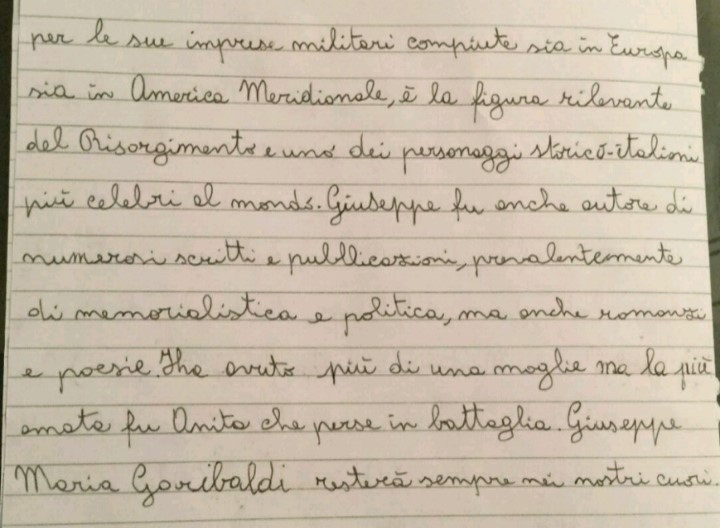 per le sue imprese militari compiute sia in Europa
sia in America Meridionale, è la figura rilevante
del Risorgimento e uno dei personaggi storico-italiani
più celebri al mondo. Giuseppe fu anche autore di
numerosi scritti e pubblicazioni, prevalentemente
di memorialistica e politica, ma anche romanzi
e poesie. Ha avuto più di una moglie ma la più
amata fu Anita che perse in battaglia. Giuseppe
Maria Garibaldi resterà sempre nei nostri cuori.